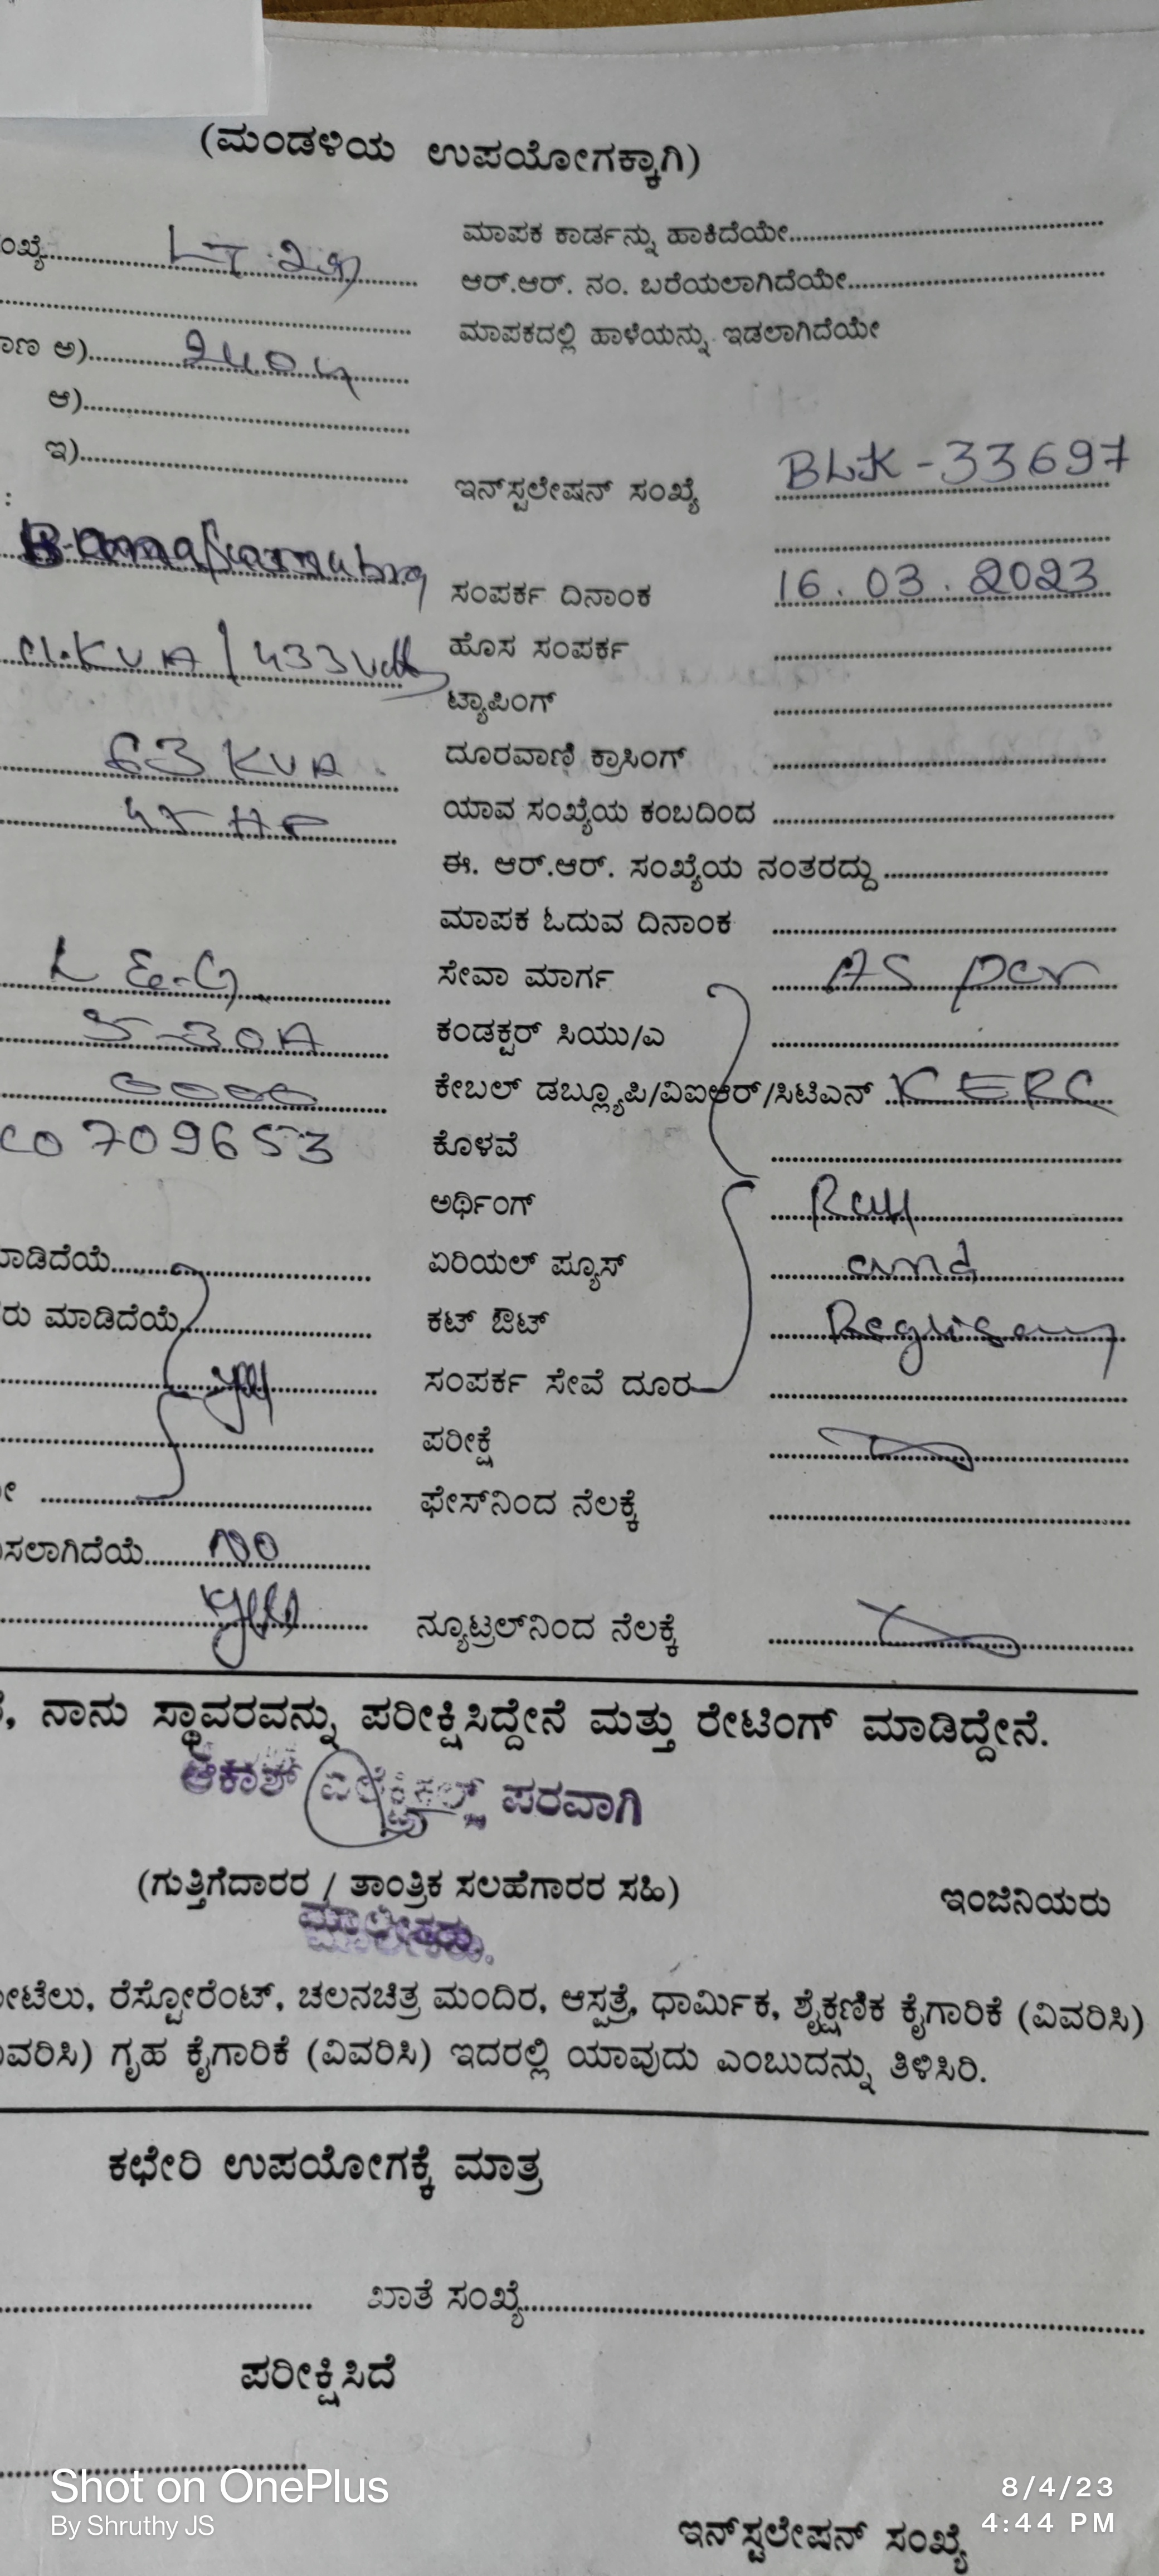 (ಮಂಡಳಿಯ ಉಪಯೋಗಕ್ಕಾಗಿ)
ಂಖ್ಯೆ LT
ಮಾಪಕ ಕಾರ್ಡನ್ನು ಹಾಕಿದೆಯೇ
ಆರ್.ಆರ್. ನಂ. ಬರೆಯಲಾಗಿದೆಯೇ
ಾಣ ಅ)
ಮಾಪಕದಲ್ಲಿ ಹಾಳೆಯನ್ನು ಇಡಲಾಗಿದೆಯೇ
ಆ)
ಇ)
ಇನ್‌ಸ್ಟಲೇಷನ್ ಸಂಖ್ಯೆ BLK-33697
:
ಸಂಪರ್ಕ ದಿನಾಂಕ 16.03.2023
KVA/433Volt ಹೊಸ ಸಂಪರ್ಕ
ಟ್ಯಾಪಿಂಗ್
63 KVA ದೂರವಾಣಿ ಕ್ರಾಸಿಂಗ್
HP ಯಾವ ಸಂಖ್ಯೆಯ ಕಂಬದಿಂದ
ಈ. ಆರ್.ಆರ್. ಸಂಖ್ಯೆಯ ನಂತರದ್ದು
ಮಾಪಕ ಓದುವ ದಿನಾಂಕ
L & G ಸೇವಾ ಮಾರ್ಗ As per
5-30A ಕಂಡಕ್ಟರ್ ಸಿಯು/ಎ
ಕೇಬಲ್ ಡಬ್ಲ್ಯೂಪಿ/ವಿಐಆರ್/ಸಿಟಿಎನ್ KERC
709653 ಕೊಳವೆ
ಅರ್ಥಿಂಗ್ Rule
ಾಡಿದೆಯೆ ಏರಿಯಲ್ ಫ್ಯೂಸ್ and
ರು ಮಾಡಿದೆಯೆ ಕಟ್ ಔಟ್
yes ಸಂಪರ್ಕ ಸೇವೆ ದೂರ
ಪರೀಕ್ಷೆ
ೇ ಫೇಸ್‌ನಿಂದ ನೆಲಕ್ಕೆ
ಸಲಾಗಿದೆಯೆ NO
yes ನ್ಯೂಟ್ರಲ್‌ನಿಂದ ನೆಲಕ್ಕೆ
, ನಾನು ಸ್ಥಾವರವನ್ನು ಪರೀಕ್ಷಿಸಿದ್ದೇನೆ ಮತ್ತು ರೇಟಿಂಗ್ ಮಾಡಿದ್ದೇನೆ.
ಆಕಾಶ್ ಎಲೆಕ್ಟ್ರಿಕಲ್ಸ್ ಪರವಾಗಿ
(ಗುತ್ತಿಗೆದಾರರ / ತಾಂತ್ರಿಕ ಸಲಹೆಗಾರರ ಸಹಿ) ಇಂಜಿನಿಯರು
ಮಾಲೀಕರು.
ೋಟೆಲು, ರೆಸ್ಟೋರೆಂಟ್, ಚಲನಚಿತ್ರ ಮಂದಿರ, ಆಸ್ಪತ್ರೆ, ಧಾರ್ಮಿಕ, ಶೈಕ್ಷಣಿಕ ಕೈಗಾರಿಕೆ (ವಿವರಿಸಿ)
ವರಿಸಿ) ಗೃಹ ಕೈಗಾರಿಕೆ (ವಿವರಿಸಿ) ಇದರಲ್ಲಿ ಯಾವುದು ಎಂಬುದನ್ನು ತಿಳಿಸಿರಿ.
ಕಛೇರಿ ಉಪಯೋಗಕ್ಕೆ ಮಾತ್ರ
ಖಾತೆ ಸಂಖ್ಯೆ
ಪರೀಕ್ಷಿಸಿದೆ
Shot on OnePlus
By Shruthy JS
8/4/23
4:44 PM
ಇನ್‌ಸ್ಟಲೇಷನ್ ಸಂಖ್ಯೆ